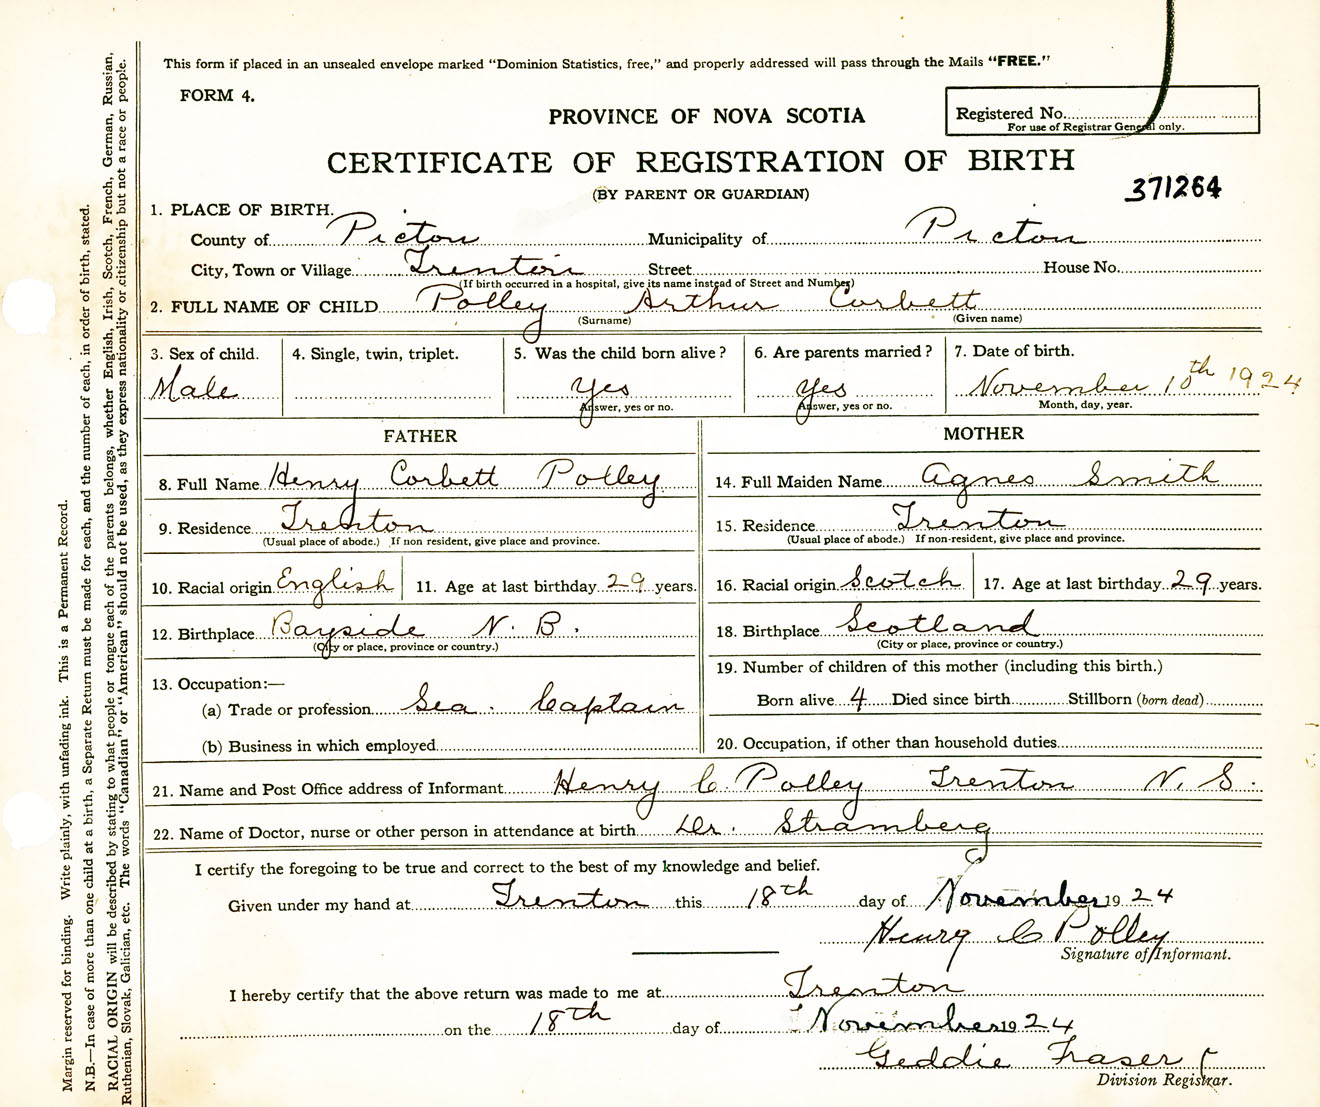 This form if placed in an unsealed envelope marked "Dominion Statistics, free," and properly addressed will pass through the Mails "FREE."
FORM 4.
PROVINCE OF NOVA SCOTIA
Registered No.
For use of Registrar General only.
CERTIFICATE OF REGISTRATION OF BIRTH
(BY PARENT OR GUARDIAN)
371264
1. PLACE OF BIRTH.
County of Picton Municipality of Picton
City, Town or Village Trenton Street House No.
(If birth occurred in a hospital, give its name instead of Street and Number)
2. FULL NAME OF CHILD Polley Arthur Corbett
(Surname) (Given name)
3. Sex of child. 4. Single, twin, triplet. 5. Was the child born alive? 6. Are parents married? 7. Date of birth.
Male Yes Yes November 10th 1924
Answer, yes or no. Answer, yes or no. Month, day, year.
FATHER MOTHER
8. Full Name Henry Corbett Polley 14. Full Maiden Name Agnes Smith
9. Residence Trenton 15. Residence Trenton
(Usual place of abode.) If non resident, give place and province. (Usual place of abode.) If non-resident, give place and province.
10. Racial origin English 11. Age at last birthday 29 years. 16. Racial origin Scotch 17. Age at last birthday 29 years.
12. Birthplace Bayside N. B. 18. Birthplace Scotland
(City or place, province or country.) (City or place, province or country.)
19. Number of children of this mother (including this birth.)
13. Occupation:—
(a) Trade or profession Sea. Captain Born alive 4 Died since birth Stillborn (born dead)
(b) Business in which employed 20. Occupation, if other than household duties
21. Name and Post Office address of Informant Henry C. Polley Trenton N. S.
22. Name of Doctor, nurse or other person in attendance at birth Dr. Stramberg
I certify the foregoing to be true and correct to the best of my knowledge and belief.
Given under my hand at Trenton this 18th day of November 1924
Henry C Polley
Signature of Informant.
I hereby certify that the above return was made to me at Trenton
on the 18th day of November 1924
Geddie Fraser
Division Registrar.
Margin reserved for binding. Write plainly, with unfading ink. This is a Permanent Record.
N.B.—In case of more than one child at a birth, a Separate Return must be made for each, and the number of each, in order of birth, stated.
RACIAL ORIGIN will be described by stating to what people or tongue each of the parents belongs, whether English, Irish, Scotch, French, German, Russian,
Ruthenian, Slovak, Galician, etc. The words "Canadian" or "American" should not be used, as they express nationality or citizenship but not a race or people.